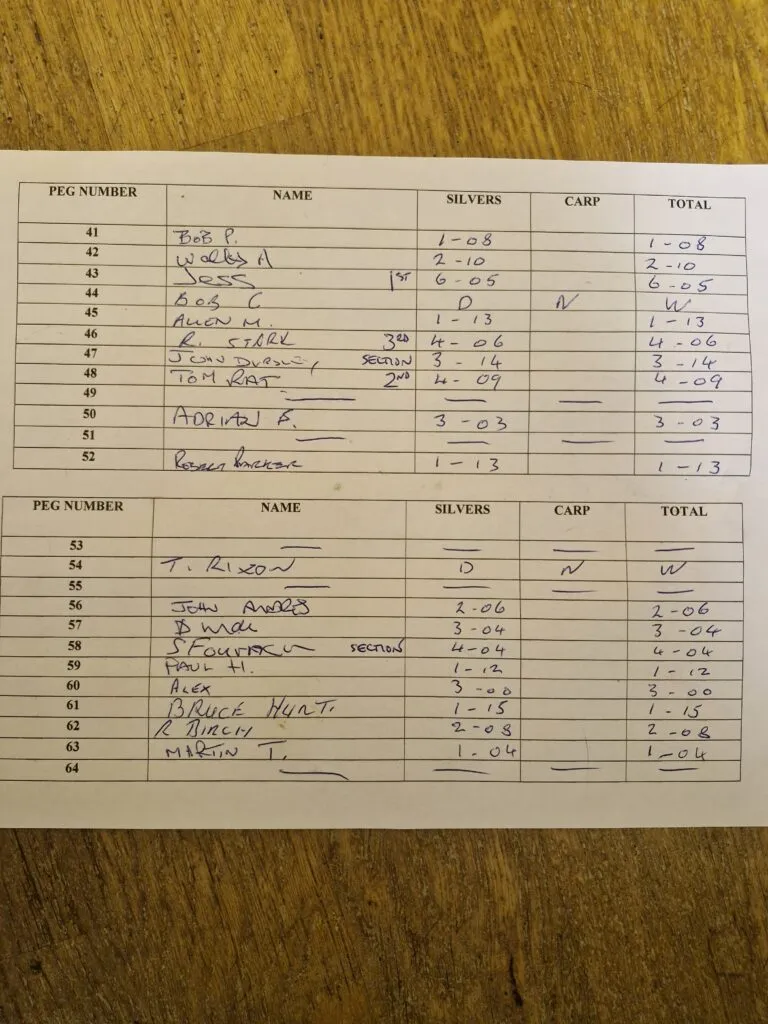 PEG NUMBER NAME SILVERS CARP TOTAL
41 BOB P. 1-08 1-08
42 2-10 2-10
43 Jess 1ST 6-05 6-05
44 BOB C D N W
45 ALLEN M. 1-13 1-13
46 R. STARK 3RD 4-06 4-06
47 JOHN SECTION 3-14 3-14
48 TOM RAT 2ND 4-09 4-09
49 — — — —
50 ADRIAN 3-03 3-03
51 — — — —
52 ROBERT PARKER 1-13 1-13
PEG NUMBER NAME SILVERS CARP TOTAL
53 — — — —
54 T. RIXON D N W
55 — — — —
56 JOHN 2-06 2-06
57 3-04 3-04
58 SECTION 4-04 4-04
59 PAUL H. 1-12 1-12
60 ALEX 3-00 3-00
61 BRUCE HUNT. 1-15 1-15
62 R BIRCH 2-08 2-08
63 MARTIN T. 1-04 1-04
64 — — — —